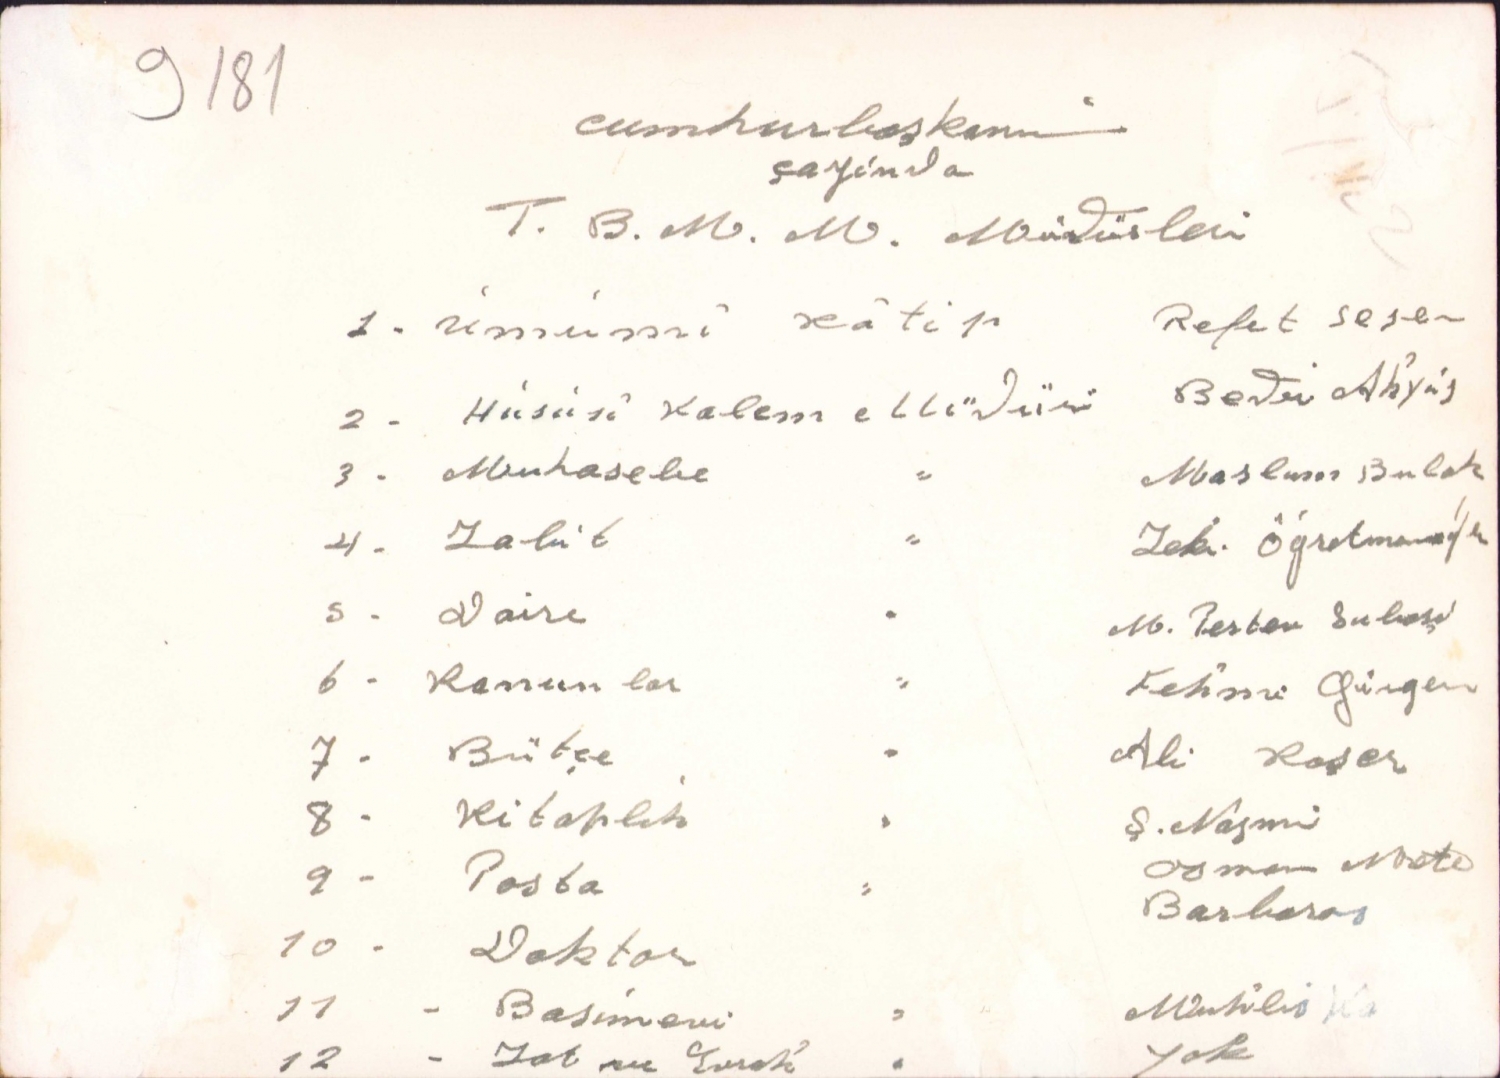 9181
Cumhurbaşkanı
çayında
T. B. M. M. Müdürleri
1 - Umumî Kâtip Refet Sezen
2 - Hususî Kalem Müdürü Bedri Akyüz
3 - Muhasebe " Mazlum Bulak
4 - Zabıt " Zeki
5 - Daire " M. Pertev Subaşı
6 - Kanunlar " Fehmi Gürgen
7 - Bütçe " Ali Kaşer
8 - Kitaplık " Ş. Nazmi
9 - Posta " Osman Mete
Barbaros
10 - Doktor
11 - Basımevi " Muhlis
12 - Zat ve Evrak " Yok